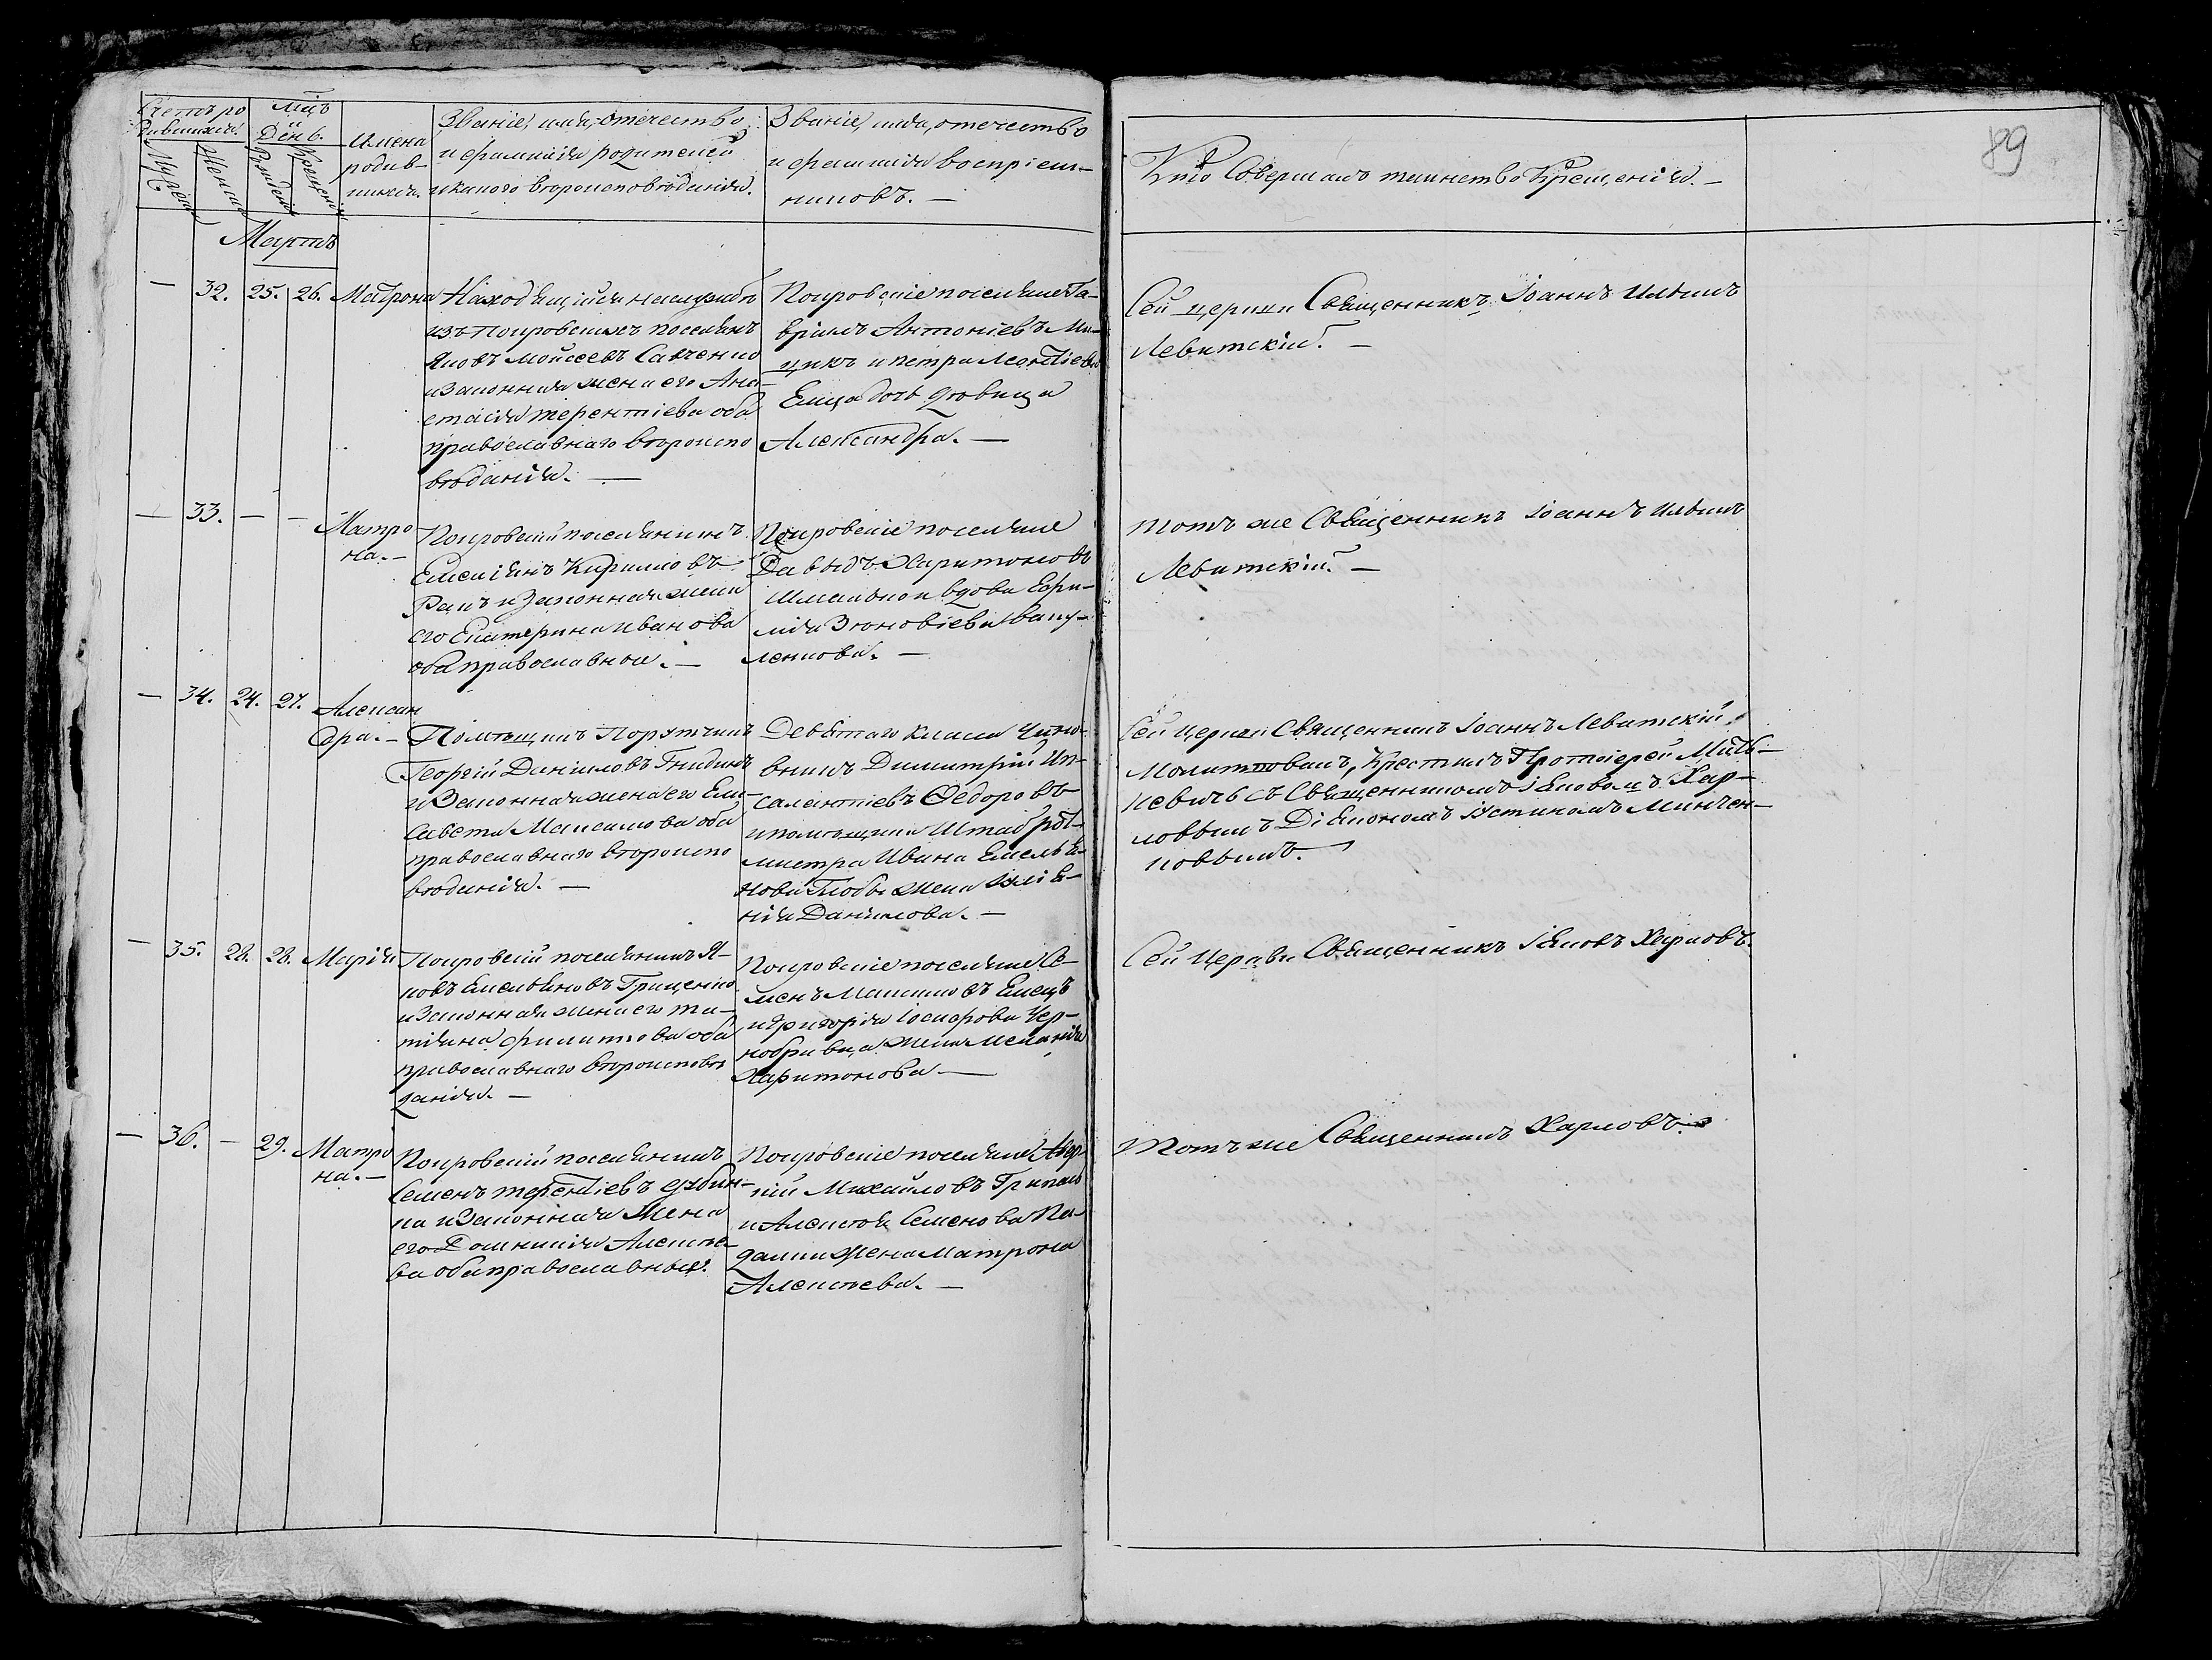 89
Счетъ ро
дившихся.
Мужеска
Женска
Мцъ
и
День.
Рожденія
Крещенія
Имена
родив-
шихся.
Званіе, имя, отечество
и фамилія родителей
и какого вѣроисповѣданія.
Званіе, имя, отечество
и фамилія воспріем-
никовъ. —
Кто совершалъ таинство Крещенія. —
Мартъ
— 32. 25. 26. Матрона
Находящійся на службѣ
изъ Покровскихъ поселянъ
Яковъ Моисеевъ Савченко
и Законная жена его Ана-
стасія Терентіева оба
православнаго вѣроиспо
вѣданія. —
Покровскіе поселяне Га-
вріилъ Антоніевъ Ми-
щикъ и Петра Леонтіева
Емца дочь дѣвица
Александра. —
Сей церкви Священникъ Іоаннъ Ильинъ
Левитскій. —
— 33. — — Матро
на. —
Покровскій поселянинъ
Емельянъ Кирилловъ
Ракъ и Законная жена
его Екатерина Иванова
оба православные. —
Покровскіе поселяне
Давыдъ Харитоновъ
Шмалько и вдова Евфи-
мія Зѣновіева Ваку-
ленкова. —
Тотъ же Священникъ Іоаннъ Ильинъ
Левитскій. —
— 34. 24. 27. Александ
дра. —
Помѣщикъ Порутчикъ
Георгій Даніиловъ Гнидинъ
и Законная жена его Ели-
савета Максимова оба
православнаго вѣроиспо
вѣданія. —
Девятаго класса Чино-
вникъ Димитрій Ип-
политіевъ Ѳедоровъ
и помѣщика Штаброт-
мистра Ивана Емелья-
нова жена Іуліа-
нія Данилова. —
Сей церкви Священникъ Іоаннъ Левитскій
Молитвовалъ, Крестилъ Протоіерей Мать-
кевичъ съ Священникомъ Іяковомъ Хар-
ловымъ Діякономъ Устиномъ Минчен-
ковымъ.
— 35. 28. 28. Марія
Покровскій поселянинъ Я-
ковъ Емельяновъ Гриценко
и Законная жена его Та-
тіяна Филиппова оба
православнаго вѣроисповѣ
данія. —
Покровскіе поселяне Се-
менъ Максимовъ Емецъ
и Григорія Іосифова Чер-
нобривца жена Меланія
Харитонова —
Сей Церкви Священникъ Іяковъ Харловъ.
— 36. — 29. Матро
на. —
Покровскій поселянинъ
Семенъ Терентіевъ Дубин-
ка и Законная жена
его Домникія Алексѣе-
ва оба православные.
Покровскіе поселяне Авер-
кій Михайловъ Грипась
и Алексѣя Семенова Па-
далки жена Матрона
Алексѣева. —
Тотъ же Священникъ Харловъ.